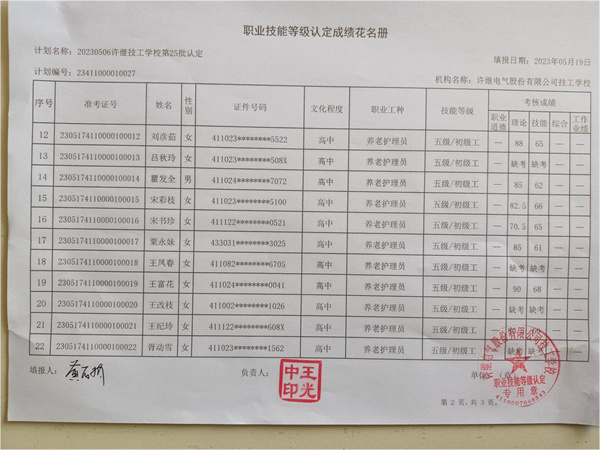 职业技能等级认定成绩花名册
计划名称：20230506许继技工学校第25批认定
填报日期：2023年05月19日
计划编号：23411000010027
机构名称：许继电气股份有限公司技工学校
序号 准考证号 姓名 性别 证件号码 文化程度 职业工种 技能等级 考核成绩
职业道德 理论 技能 综合 工作业绩
12 2305174110000100012 刘彦茹 女 411023********5522 高中 养老护理员 五级/初级工 — 88 65 — —
13 2305174110000100013 吕秋玲 女 411023********508X 高中 养老护理员 五级/初级工 — 缺考 缺考 — —
14 2305174110000100014 瞿发全 男 411024********7072 高中 养老护理员 五级/初级工 — 85 62 — —
15 2305174110000100015 宋彩枝 女 411023********5100 高中 养老护理员 五级/初级工 — 82.5 66 — —
16 2305174110000100016 宋书珍 女 411122********0521 高中 养老护理员 五级/初级工 — 70.5 65 — —
17 2305174110000100017 粟永妹 女 433031********3025 高中 养老护理员 五级/初级工 — 85 61 — —
18 2305174110000100018 王凤春 女 411082********6705 高中 养老护理员 五级/初级工 — 缺考 缺考 — —
19 2305174110000100019 王富花 女 411024********0041 高中 养老护理员 五级/初级工 — 90 68 — —
20 2305174110000100020 王改枝 女 411002********1026 高中 养老护理员 五级/初级工 — 缺考 缺考 — —
21 2305174110000100021 王纪玲 女 411122********608X 高中 养老护理员 五级/初级工 —
22 2305174110000100022 胥动雪 女 411023********1562 高中 养老护理员 五级/初级工 — 缺考
填报人：
负责人：
王光中印
单位（章）
许继电气股份有限公司技工学校
职业技能等级认定
专用章
第 2 页，共 3 页。